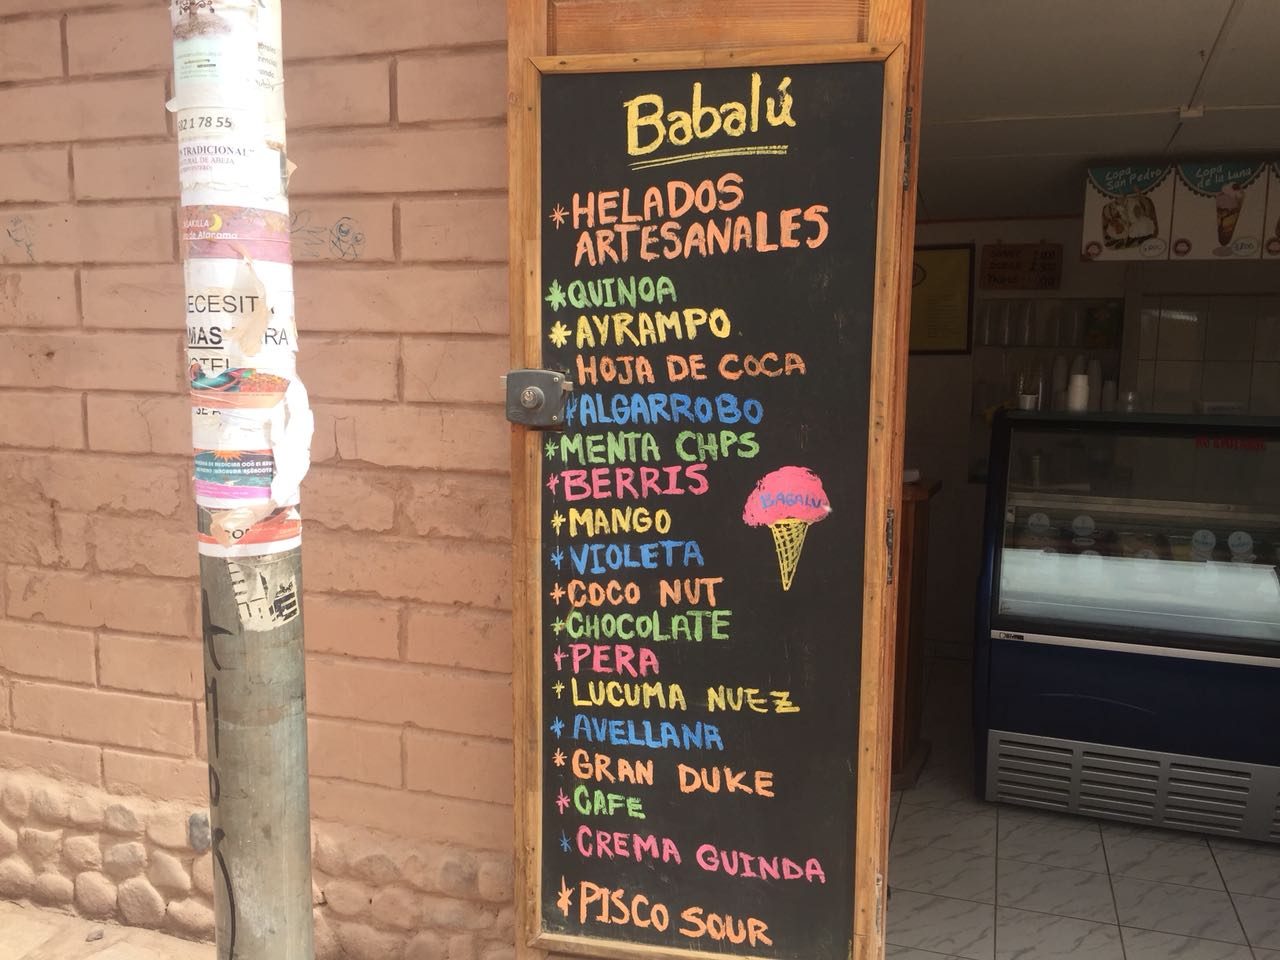 82 1 78 55
TRADICIONAL"
DE ABEJA
de Atacama
ECESIT
MAS
RA
OTEL
SE A
Babalú
*HELADOS
ARTESANALES
*QUINOA
*AYRAMPO
HOJA DE COCA
*ALGARROBO
*MENTA CHPS
*BERRIS
*MANGO
*VIOLETA
*COCO NUT
*CHOCOLATE
*PERA
*LUCUMA NUEZ
*AVELLANA
*GRAN DUKE
*CAFE
*CREMA GUINDA
*PISCO SOUR
BABALU
Copa
San Pedro
Copa
de la Luna